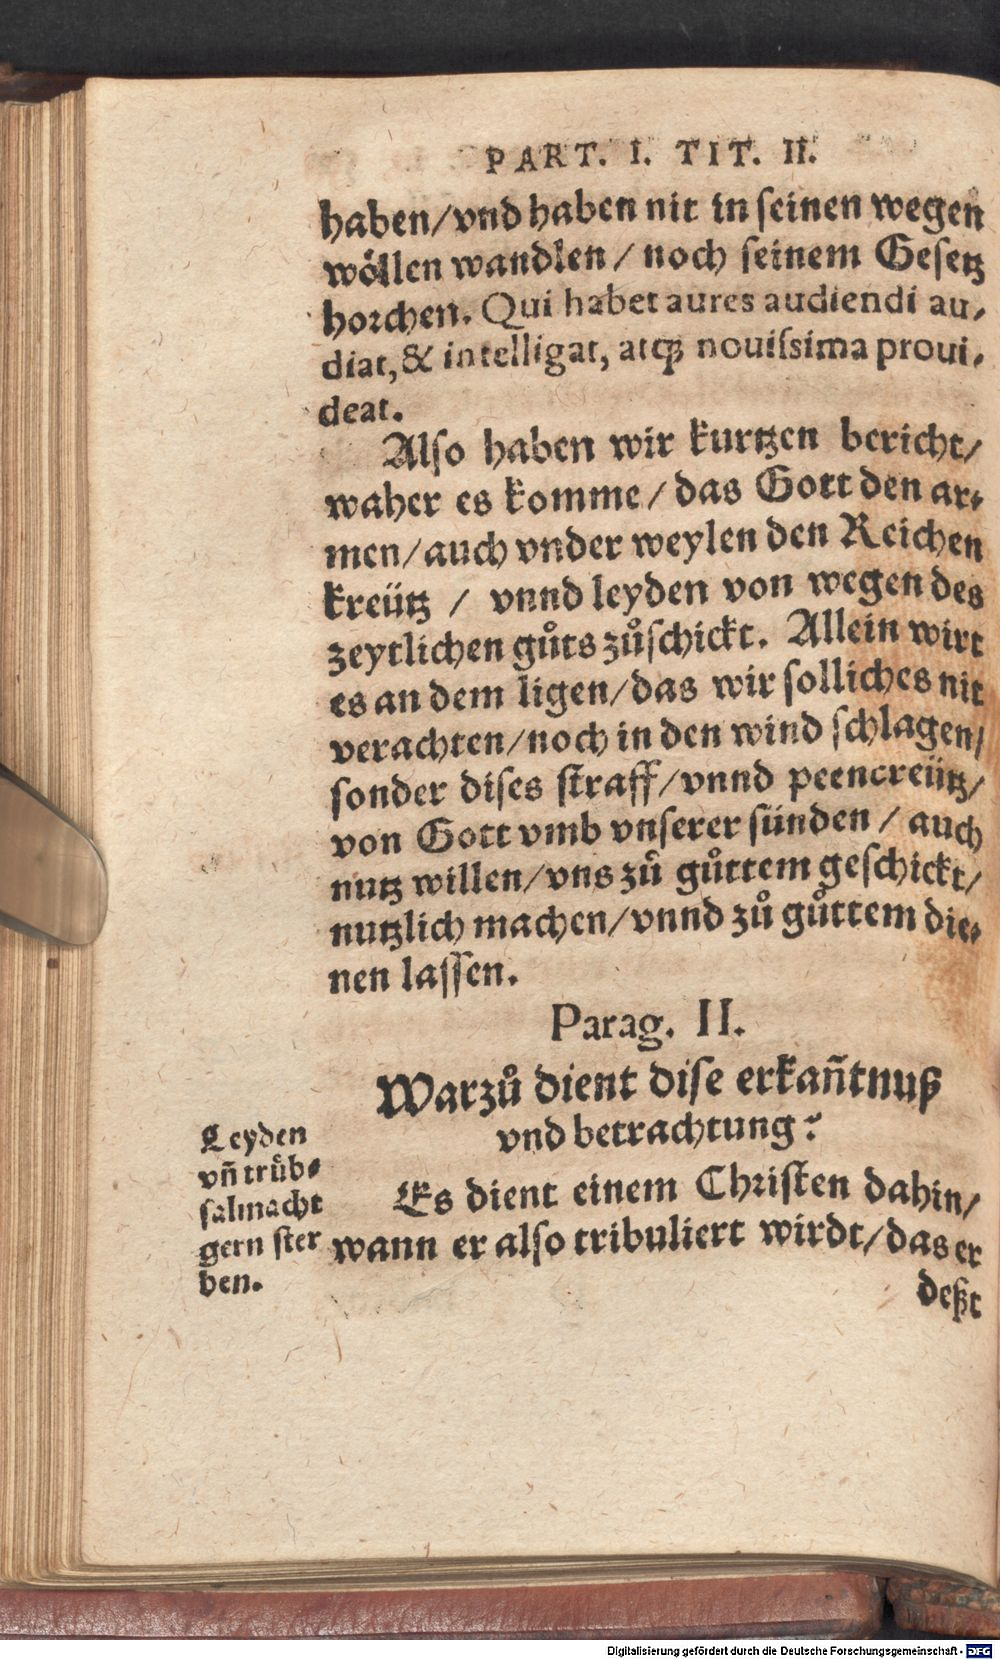 PART. I. TIT. II.
haben/vnd haben nit in seinen wegen
wöllen wandlen/ noch seinem Gesetz
horchen. Qui habet aures audiendi au-
diat, & intelligat, atq; nouissima proui-
deat.
Also haben wir kurtzen bericht/
waher es komme/das Gott den ar-
men/auch vnder weylen den Reichen
kreütz / vnnd leyden von wegen des
zeytlichen gůts zůschickt. Allein wirt
es an dem ligen/das wir solliches nit
verachten/noch in den wind schlagen/
sonder dises straff/vnnd peencreütz/
von Gott vmb vnserer sünden / auch
nutz willen/vns zů gůttem geschickt/
nutzlich machen/vnnd zů gůttem die-
nen lassen.
Parag. II.
Warzů dient dise erkañtnuß
vnd betrachtung?
Leyden
vñ trüb-
salmacht
gern ster
ben.
Es dient einem Christen dahin/
wann er also tribuliert wirdt/das er
deßt
Digitalisierung gefördert durch die Deutsche Forschungsgemeinschaft - DFG